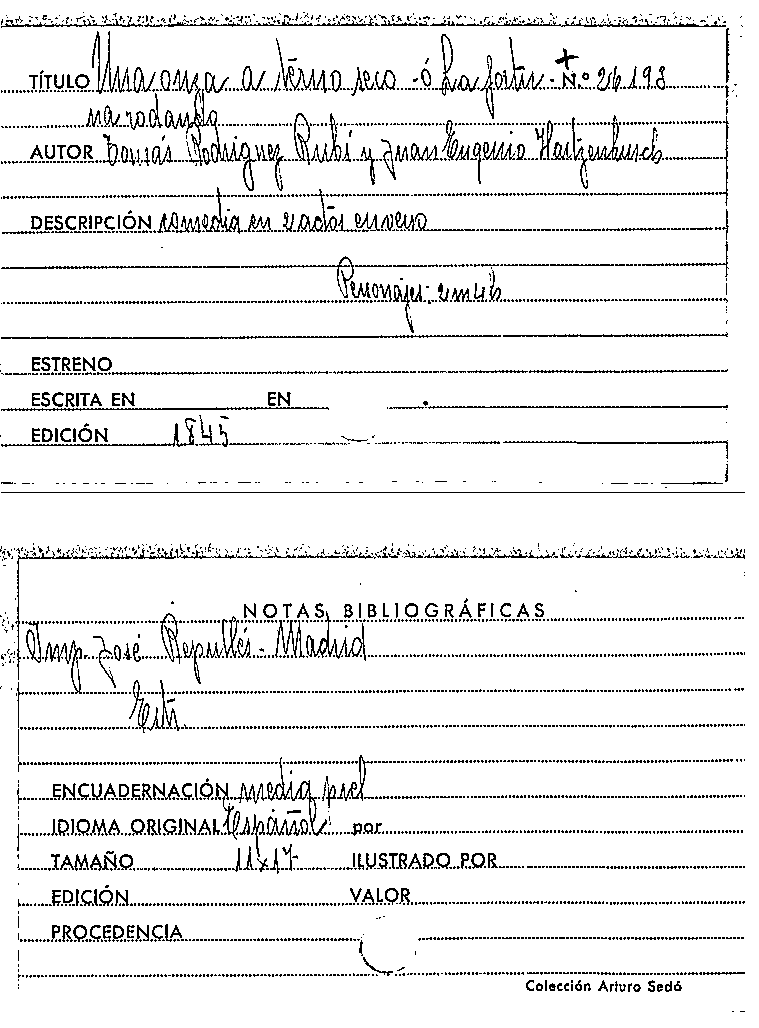 TÍTULO Una onza a terno seco - ó La fortu- N.º 26198
na rodando
AUTOR Tomás Rodriguez Rubí y Juan Eugenio Hartzenbusch
DESCRIPCIÓN comedia en 2 actos en verso
Personajes: 2m 4h
ESTRENO
ESCRITA EN EN
EDICIÓN 1845
NOTAS BIBLIOGRÁFICAS
Imp. José Repullés - Madrid
ENCUADERNACIÓN media piel
IDIOMA ORIGINAL Español por
TAMAÑO 11x17 ILUSTRADO POR
EDICIÓN VALOR
PROCEDENCIA
Colección Arturo Sedó